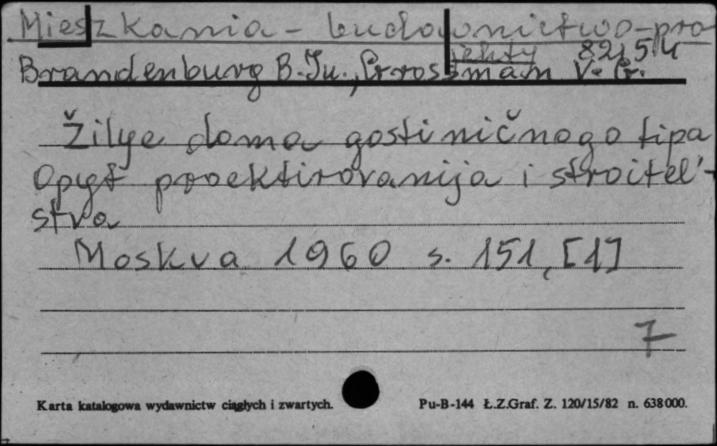 Mieszkania - budownictwo - pro
jekty 8215 U
Brandenburg B. Ju., Grossman V. G.
Žilye doma gostiničnogo tipa
Opyt proektirovanija i stroitel'-
stva
Moskva 1960 s. 151, [1]
7
Karta katalogowa wydawnictw ciągłych i zwartych. Pu-B-144 Ł.Z.Graf. Z. 120/15/82 n. 638000.